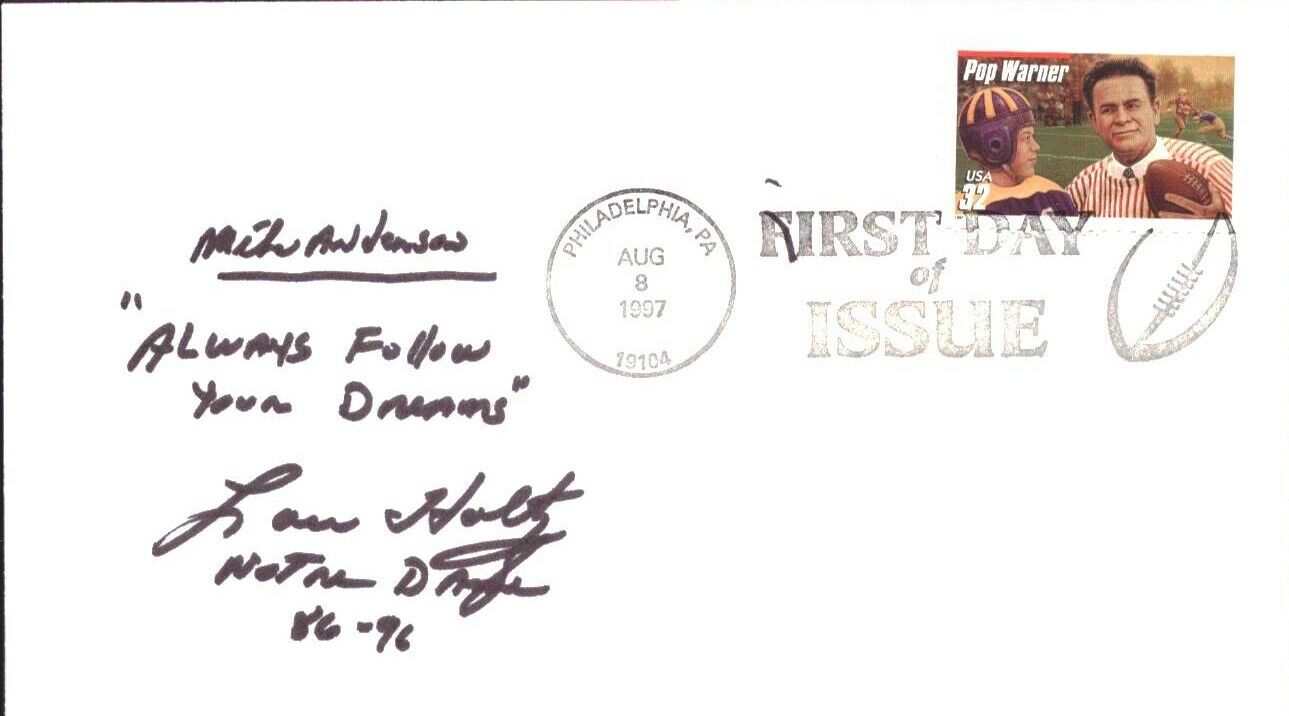 Pop Warner
USA
32
PHILADELPHIA, PA
AUG
8
1997
19104
FIRST DAY
of
ISSUE
Mike Anderson
"Always Follow
Your Dreams"
Lou Holtz
Notre Dame
86-96